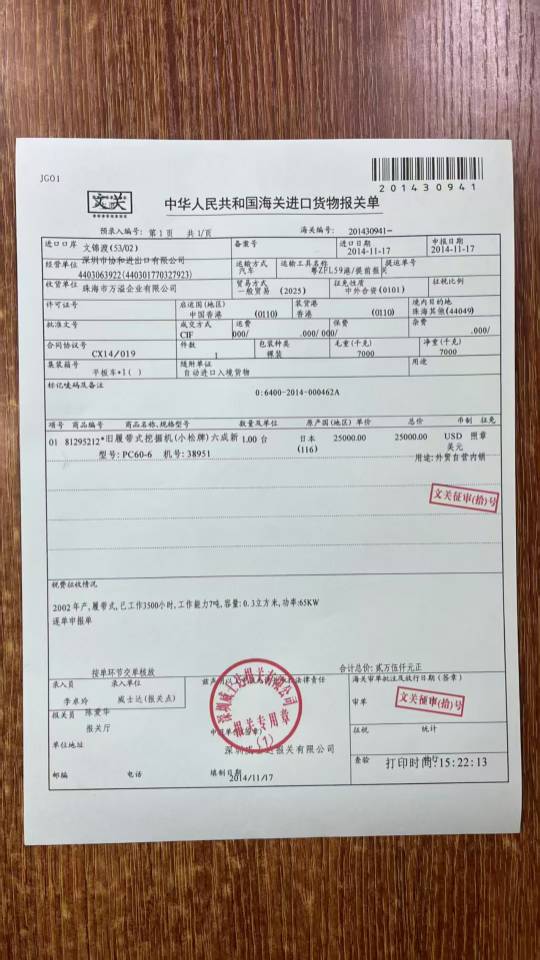 JG01
文关
201430941
中华人民共和国海关进口货物报关单
预录入编号: 第1页 共1/页 海关编号: 201430941-
进口口岸 文锦渡(53/02) 备案号 进口日期 2014-11-17 申报日期 2014-11-17
经营单位 深圳市协和进出口有限公司 4403063922(440301770327923) 运输方式 汽车 运输工具名称 粤ZFL59港/提前报关 提运单号
收货单位 珠海市万溢企业有限公司 贸易方式 一般贸易 (2025) 征免性质 中外合资(0101) 征税比例
许可证号 启运国(地区) 中国香港 (0110) 装货港 香港 (0110) 境内目的地 珠海其他(44049)
批准文号 成交方式 CIF 运费 000/ .000/ 保费 000/ .000/ 杂费 .000/
合同协议号 CX14/019 件数 1 包装种类 裸装 毛重(千克) 7000 净重(千克) 7000
集装箱号 平板车*1( ) 随附单证 自动进口入境货物 用途
标记唛码及备注
0:6400-2014-000462A
项号 商品编号 商品名称、规格型号 数量及单位 原产国(地区) 单价 总价 币制 征免
01 81295212*旧履带式挖掘机(小松牌)六成新 1.00 台 日本 25000.00 25000.00 USD 照章
型号: PC60-6 机号: 38951 (116) 美元
用途:外贸自营内销
文关征审(拾)号
税费征收情况
2002年产,履带式,已工作3500小时,工作能力7吨,容量:0.3立方米,功率:65KW
逐单申报单
按单环节交单核放 合计总价: 贰万伍仟元正
录入员 录入单位 法律责任 海关审单批注及放行日期(签章)
李卓玲 威士达(报关点) 审单 文关征审(拾)号
报关员 陈爱华
报关厅 报关专用章 (1) 征税 统计
单位地址 报关有限公司
查验 打印时间:15:22:13
邮编 电话 填制日期 2014/11/17